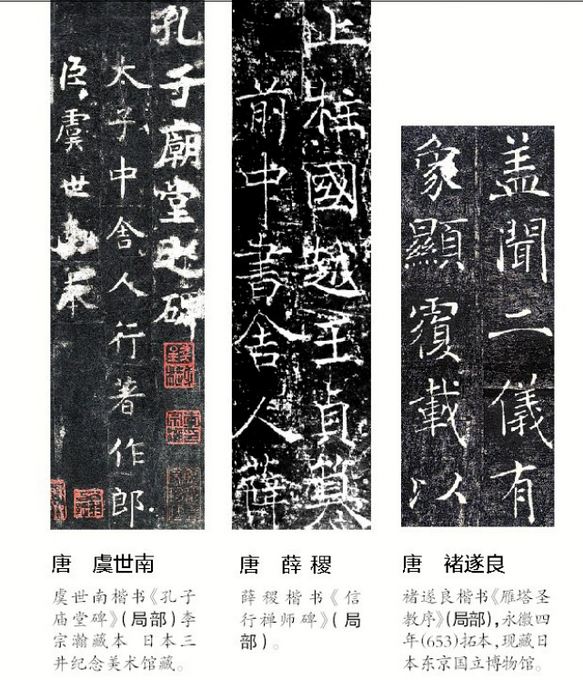 孔子廟堂之碑
太子中舍人行著作郎
臣虞世
上柱國越王貞
前中書舍人薛
盖聞二儀有
象顯覆載以
唐 虞世南
虞世南楷书《孔子
庙堂碑》(局部)李
宗瀚藏本 日本三
井纪念美术馆藏。
唐 薛稷
薛稷楷书《信
行禅师碑》(局
部)。
唐 褚遂良
褚遂良楷书《雁塔圣
教序》(局部),永徽四
年(653)拓本,现藏日
本东京国立博物馆。